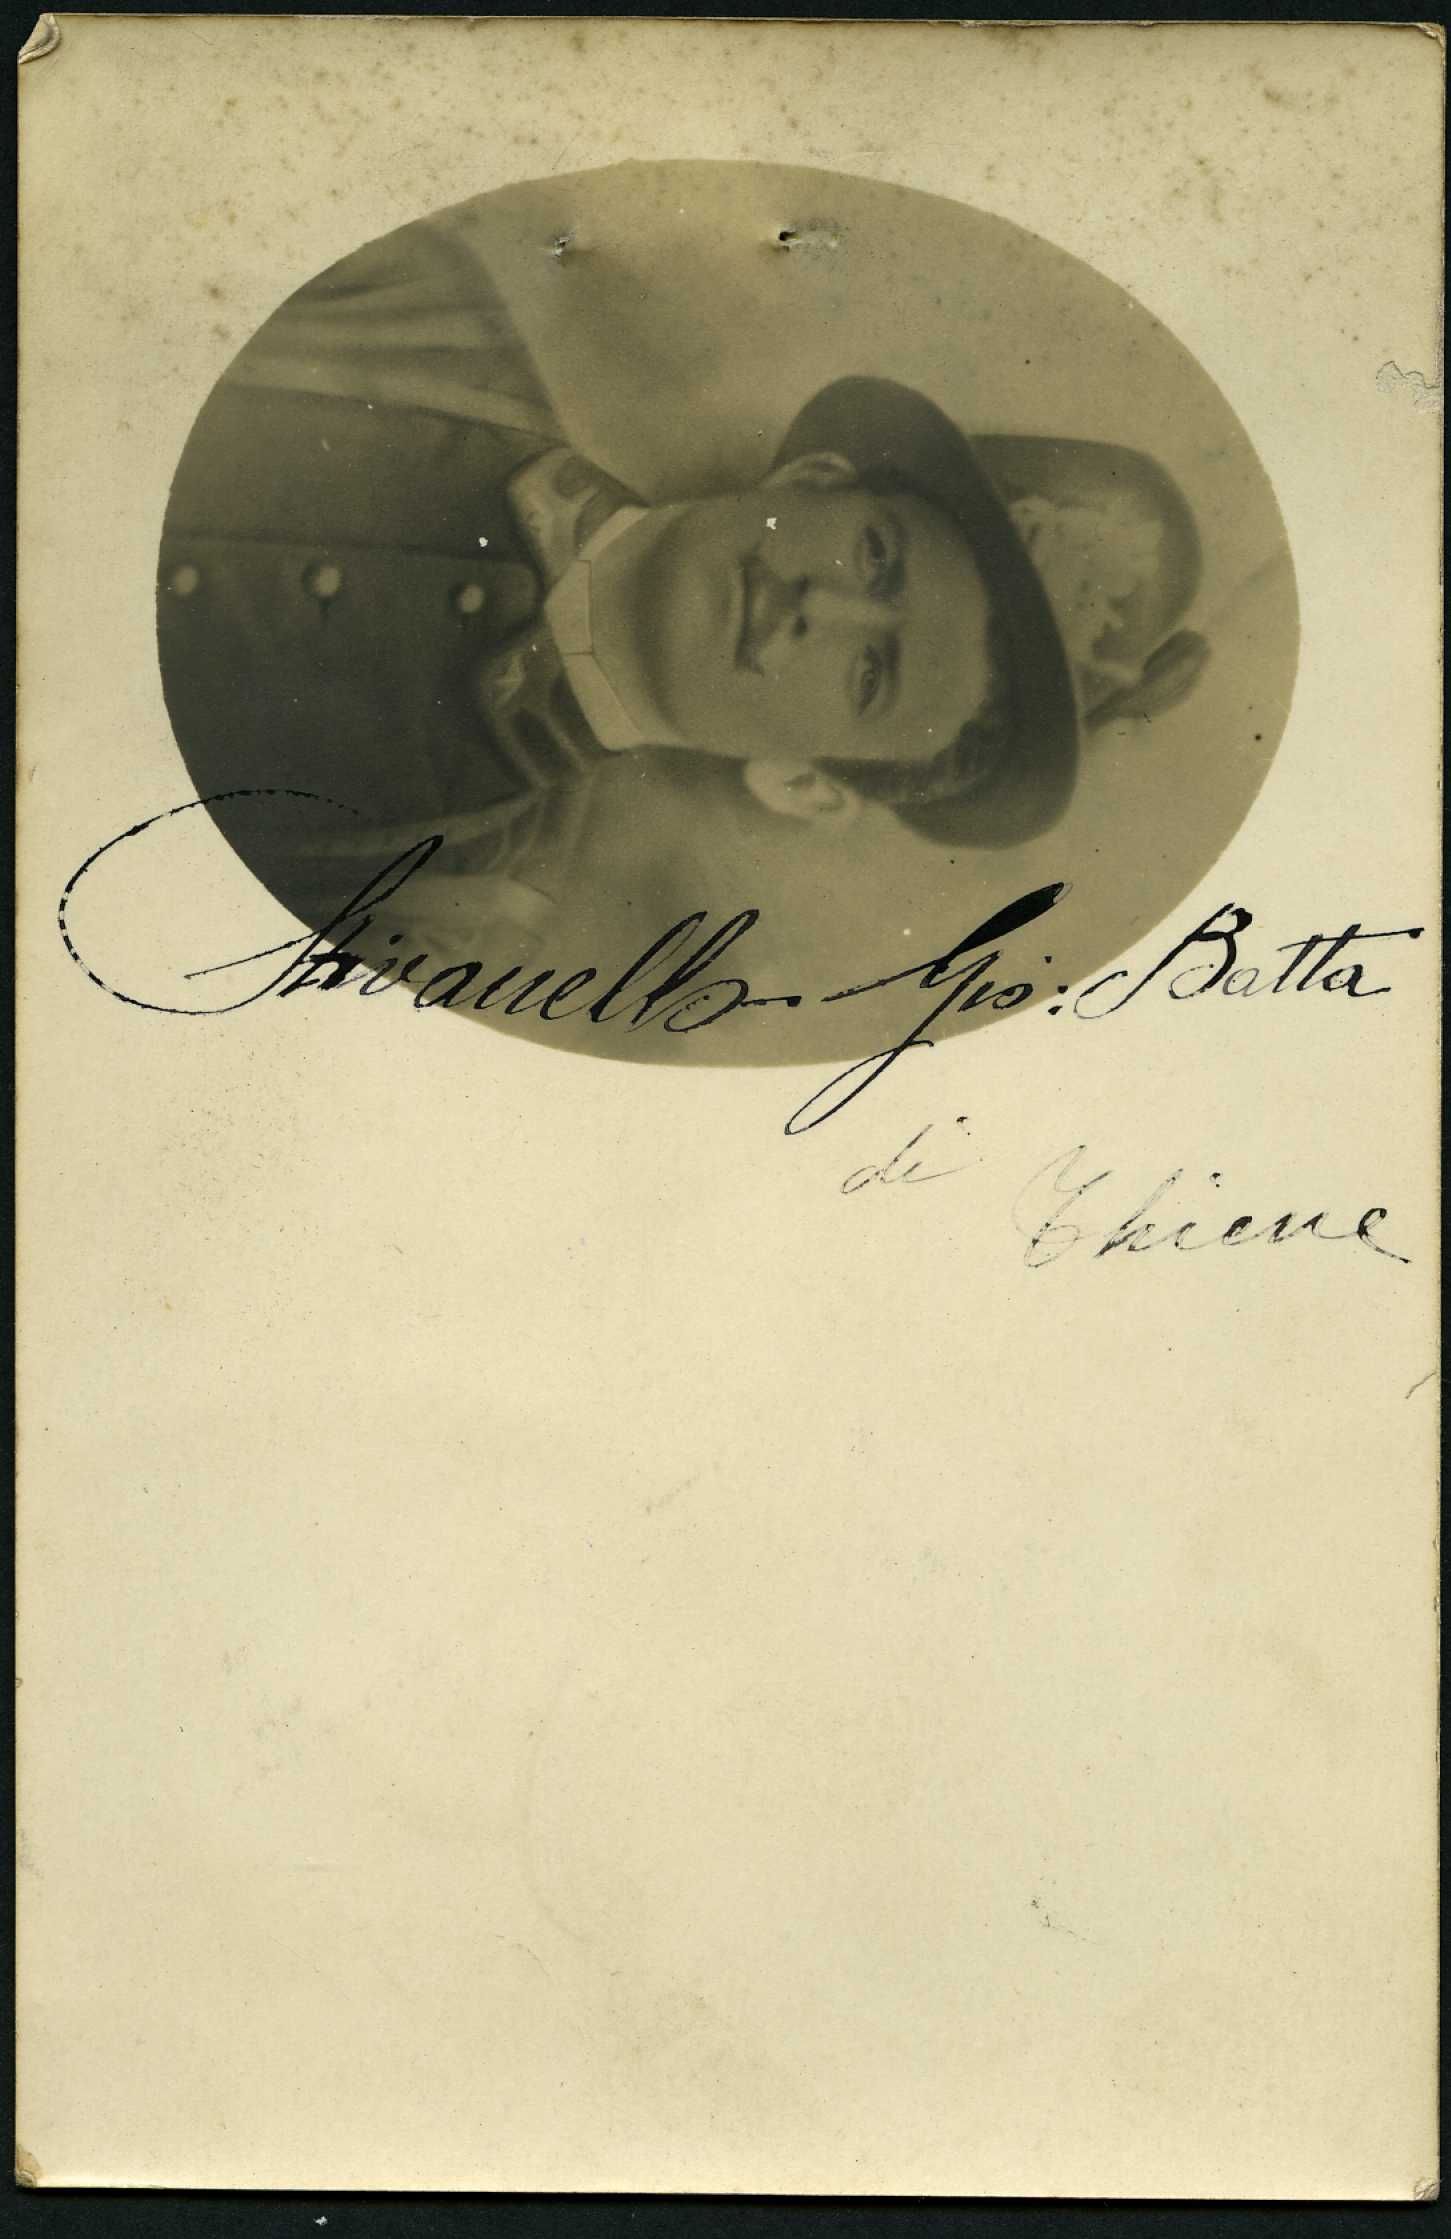 Stivanello Gio: Batta
di
Thiene